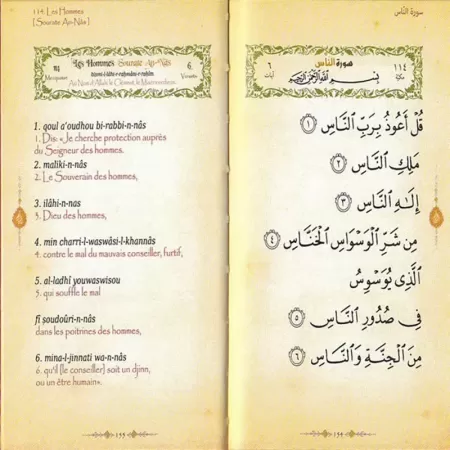 114. Les Hommes
[ Sourate An-Nâs ]
Les Hommes Sourate An-Nâs
bismi-l-lâhi-r-rahmâni-r-rahîm.
Au Nom d'Allah, le Clément, le Miséricordieux.
114
Mecquoise
6.
Versets
1. qoul a'oudhou bi-rabbi-n-nâs
1. Dis: « Je cherche protection auprès
du Seigneur des hommes.
2. maliki-n-nâs
2. Le Souverain des hommes,
3. ilâhi-n-nas
3. Dieu des hommes,
4. min charri-l-waswâsi-l-khannâs
4. contre le mal du mauvais conseiller, furtif,
5. al-ladhî youwaswisou
5. qui souffle le mal
fî ṣoudoûri-n-nâs
dans les poitrines des hommes,
6. mina-l-jinnati wa-n-nâs
6. qu'il [le conseiller] soit un djinn,
ou un être humain».
سورة الناس
١١٤
مكية
سورة الناس
٦
آيات
بِسْمِ اللَّهِ الرَّحْمَٰنِ الرَّحِيمِ
قُلْ أَعُوذُ بِرَبِّ ٱلنَّاسِ ١
مَلِكِ ٱلنَّاسِ ٢
إِلَٰهِ ٱلنَّاسِ ٣
مِن شَرِّ ٱلْوَسْوَاسِ ٱلْخَنَّاسِ ٤
ٱلَّذِى يُوَسْوِسُ
فِى صُدُورِ ٱلنَّاسِ ٥
مِنَ ٱلْجِنَّةِ وَٱلنَّاسِ ٦